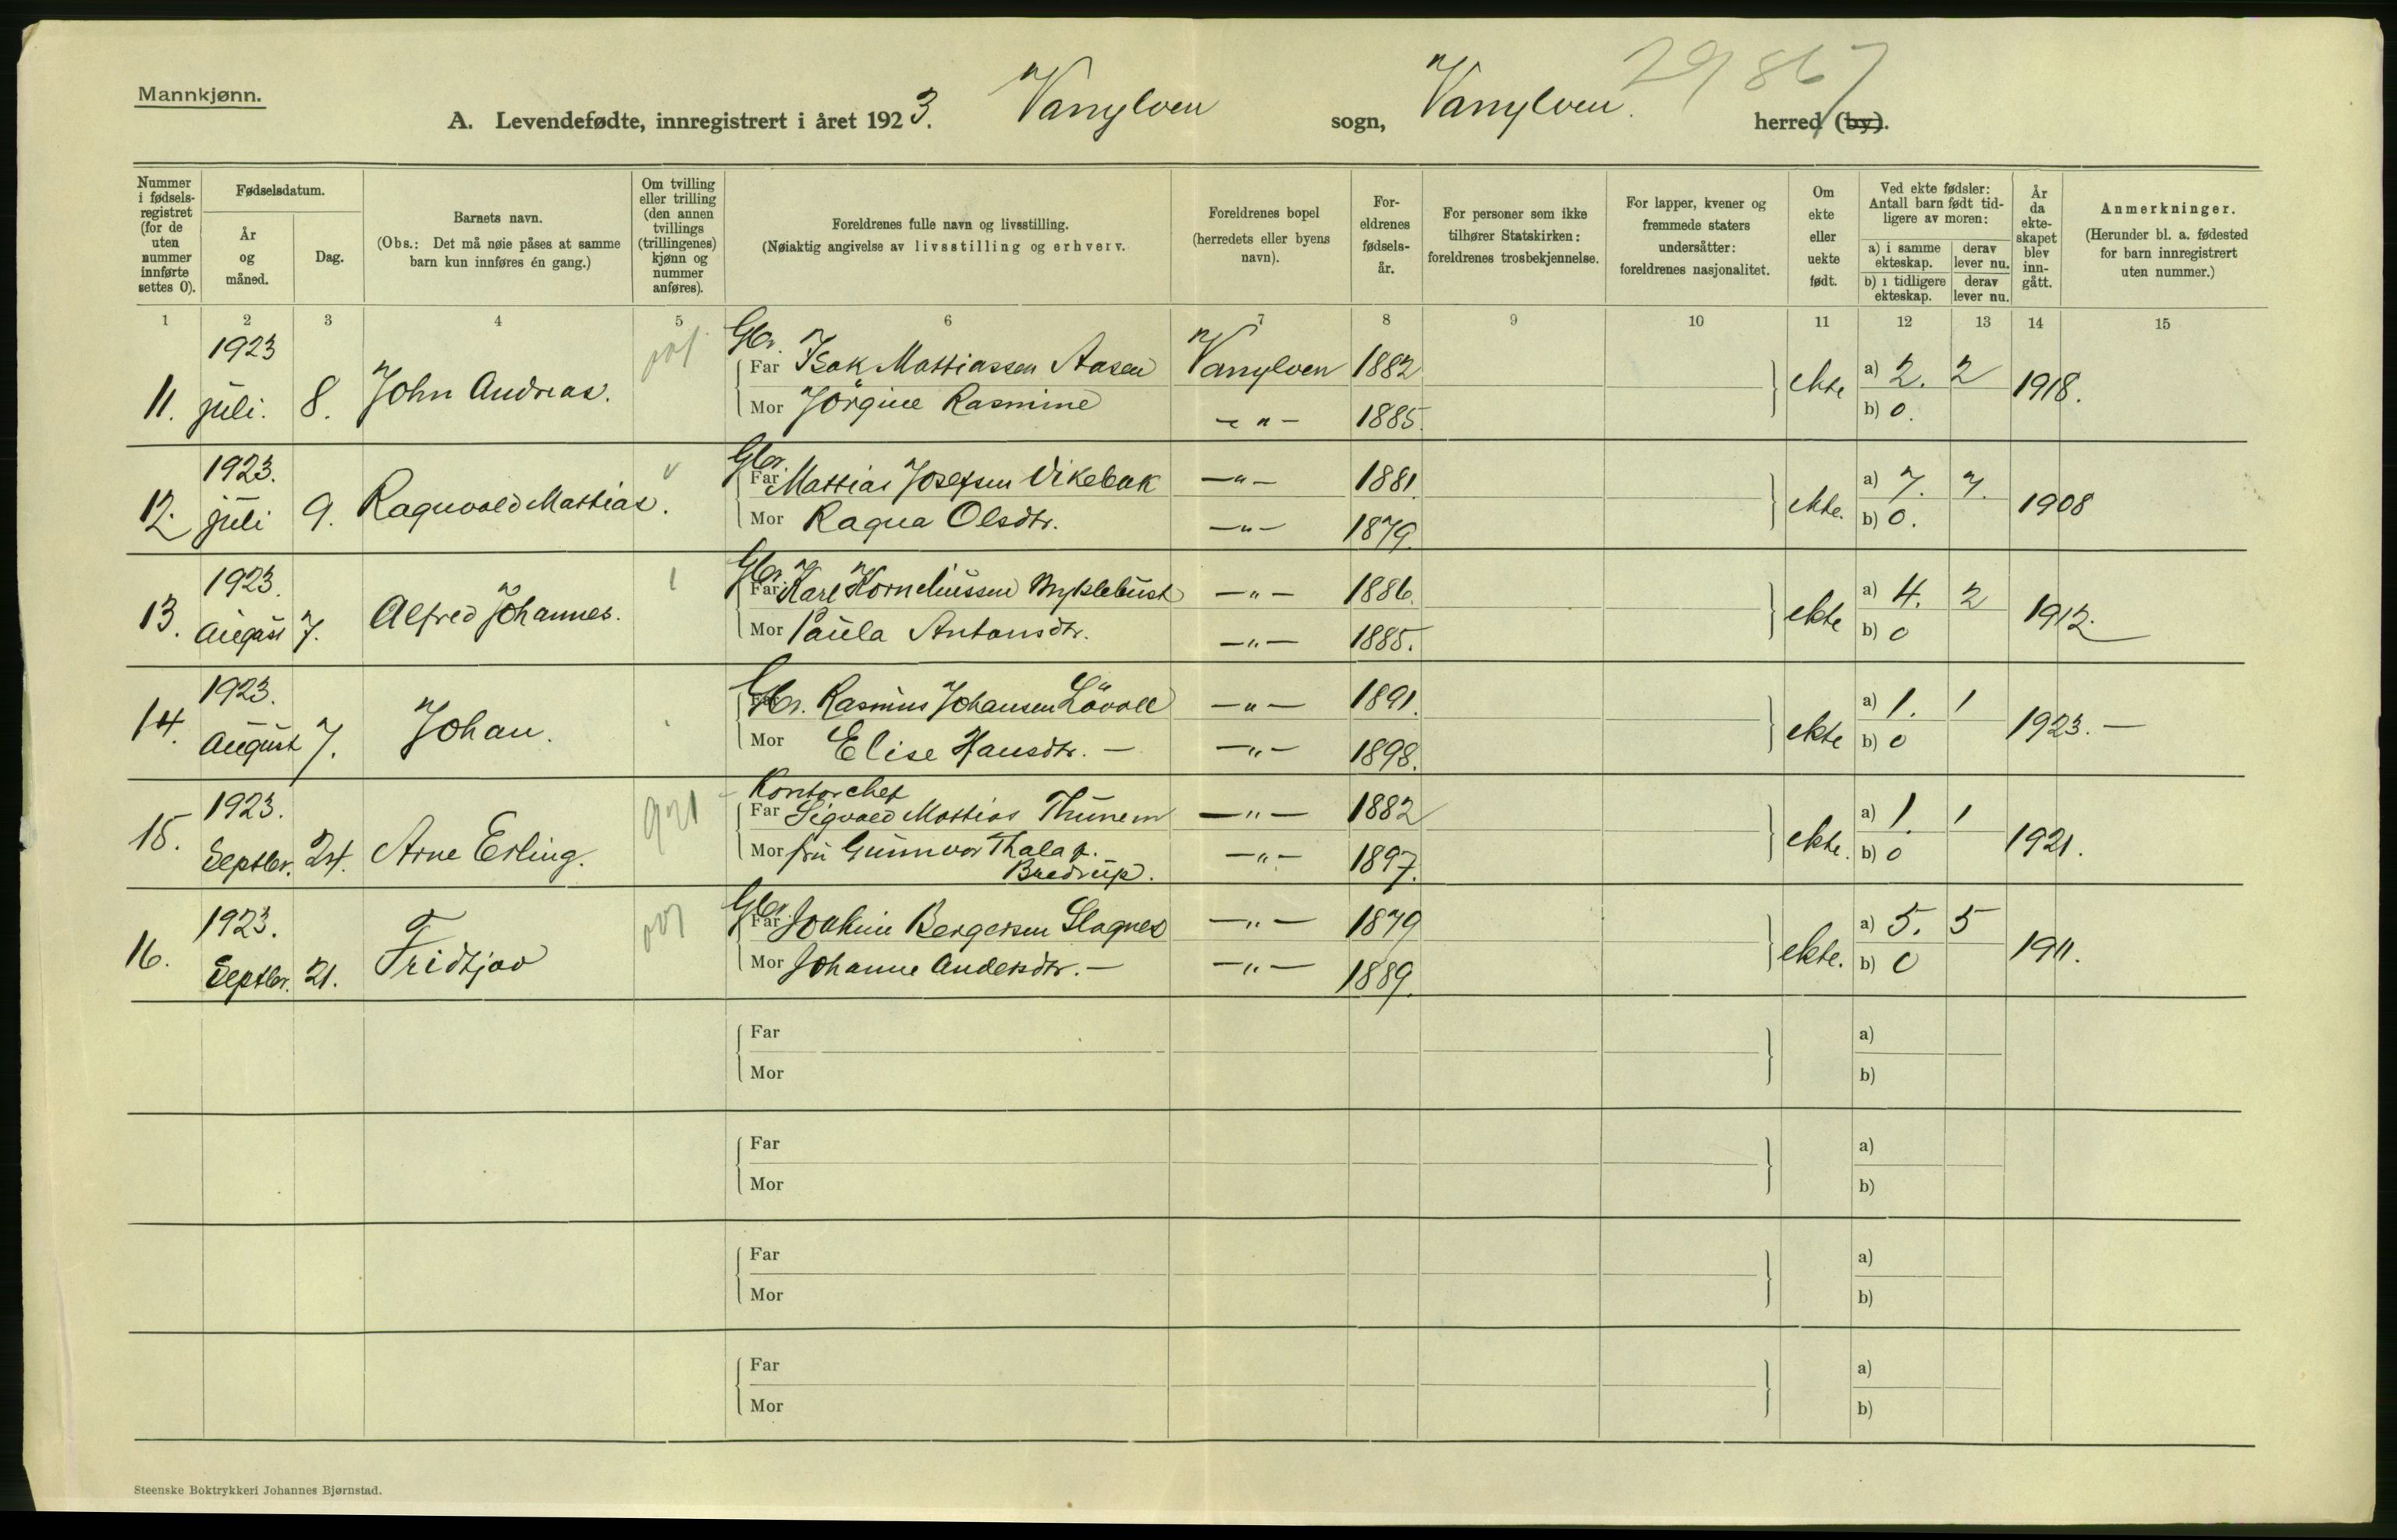 Mannkjønn.
29867
A. Levendefødte, innregistrert i året 1923. Vanylven sogn, Vanylven. herred (by).
Nummer i fødselsregistret (for de uten nummer innførte settes 0).
Fødselsdatum.
År og måned.
Dag.
Barnets navn.
(Obs.: Det må nøie påses at samme barn kun innføres én gang.)
Om tvilling eller trilling (den annen tvillings (trillingenes) kjønn og nummer anføres).
Foreldrenes fulle navn og livsstilling.
(Nøiaktig angivelse av livsstilling og erhverv.
Foreldrenes bopel (herredets eller byens navn).
Foreldrenes fødselsår.
For personer som ikke tilhører Statskirken: foreldrenes trosbekjennelse.
For lapper, kvener og fremmede staters undersåtter: foreldrenes nasjonalitet.
Om ekte eller uekte født.
Ved ekte fødsler: Antall barn født tidligere av moren:
a) i samme ekteskap.
derav lever nu.
b) i tidligere ekteskap.
derav lever nu.
År da ekteskapet blev inngått.
Anmerkninger.
(Herunder bl. a. fødested for barn innregistrert uten nummer.)
1 2 3 4 5 6 7 8 9 10 11 12 13 14 15
11. 1923 juli. 8. John Andreas.
Gbr.
Far Isak Mattiassen Aasen Vanylven 1882
Mor Jörgine Rasmine — " — 1885.
ekte a) 2. 2 b) 0. 1918.
12. 1923. juli 9. Ragnvald Mattias.
Gbr.
Far Mattias Josefsen Vikebak — " — 1881.
Mor Ragna Olsdtr. — " — 1879.
ekte. a) 7. 7. b) 0. 1908
13. 1923. August 7. Alfred Johannes.
Gbr.
Far Karl Korneliussen Myklebust — " — 1886.
Mor Paula Antonsdtr. — " — 1885.
ekte a) 4. 2 b) 0 1912.
14. 1923. August 7. Johan.
Far Gbr. Rasmus Johansen Lövoll — " — 1891.
Mor Elise Hansdtr. — — " — 1898.
ekte a) 1. 1 b) 0 1923. —
15. 1923. Septbr. 24. Arne Erling. 921
Kontorchef
Far Sigvald Mattias Thunem — " — 1882
Mor fru Gunnvor Thala f. Bredrup. — " — 1897.
ekte. a) 1. 1 b) 0 1921.
16. 1923. Septbr. 21. Fridtjov
Gbr.
Far Joakim Bergersen Slagnes — " — 1879
Mor Johanne Andersdtr. — — " — 1889.
ekte. a) 5. 5 b) 0 1911.
Far a)
Mor b)
Far a)
Mor b)
Far a)
Mor b)
Far a)
Mor b)
Steenske Boktrykkeri Johannes Bjørnstad.